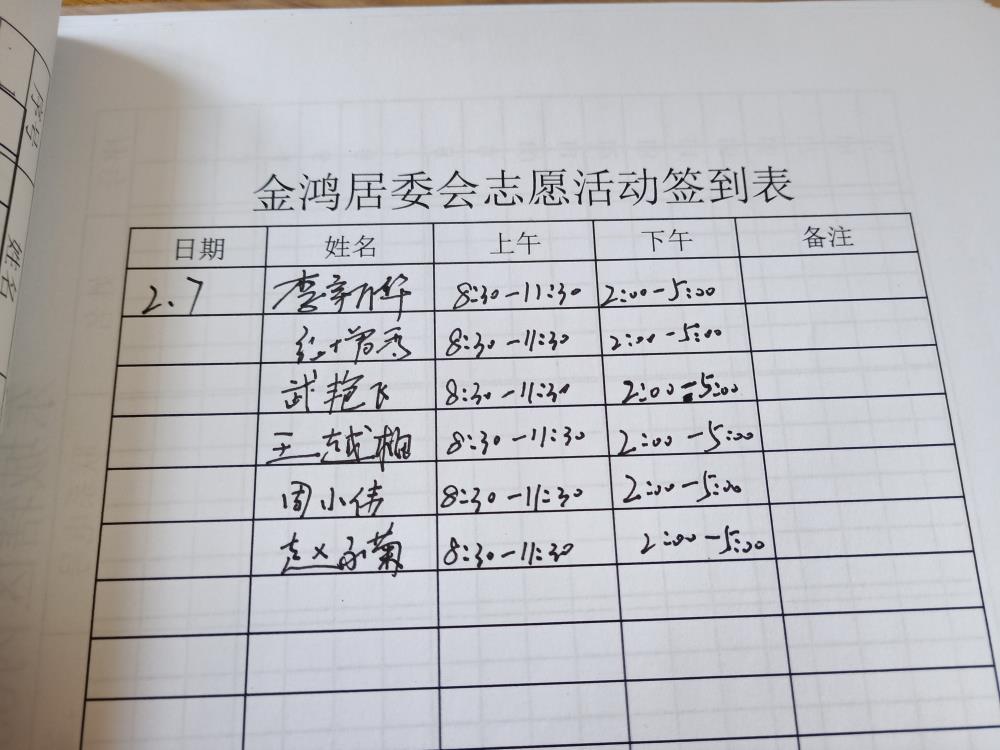 序号
姓名
金鸿居委会志愿活动签到表
日期 姓名 上午 下午 备注
2.7 李新华 8:30-11:30 2:00-5:00
增秀 8:30-11:30 2:00-5:00
武艳飞 8:30-11:30 2:00-5:00
王越楠 8:30-11:30 2:00-5:00
周小伟 8:30-11:30 2:00-5:00
赵永菊 8:30-11:30 2:00-5:00